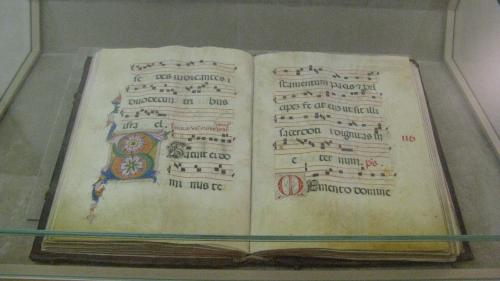 se des iudicantes
duodecim tri bus
isra el.
Statuit ei do
mi nus te
stamentum pacis & pri
cipes fe cit eum ut sit illi
sacerdotii dignitas in
e ter num. ps.
Memento domine